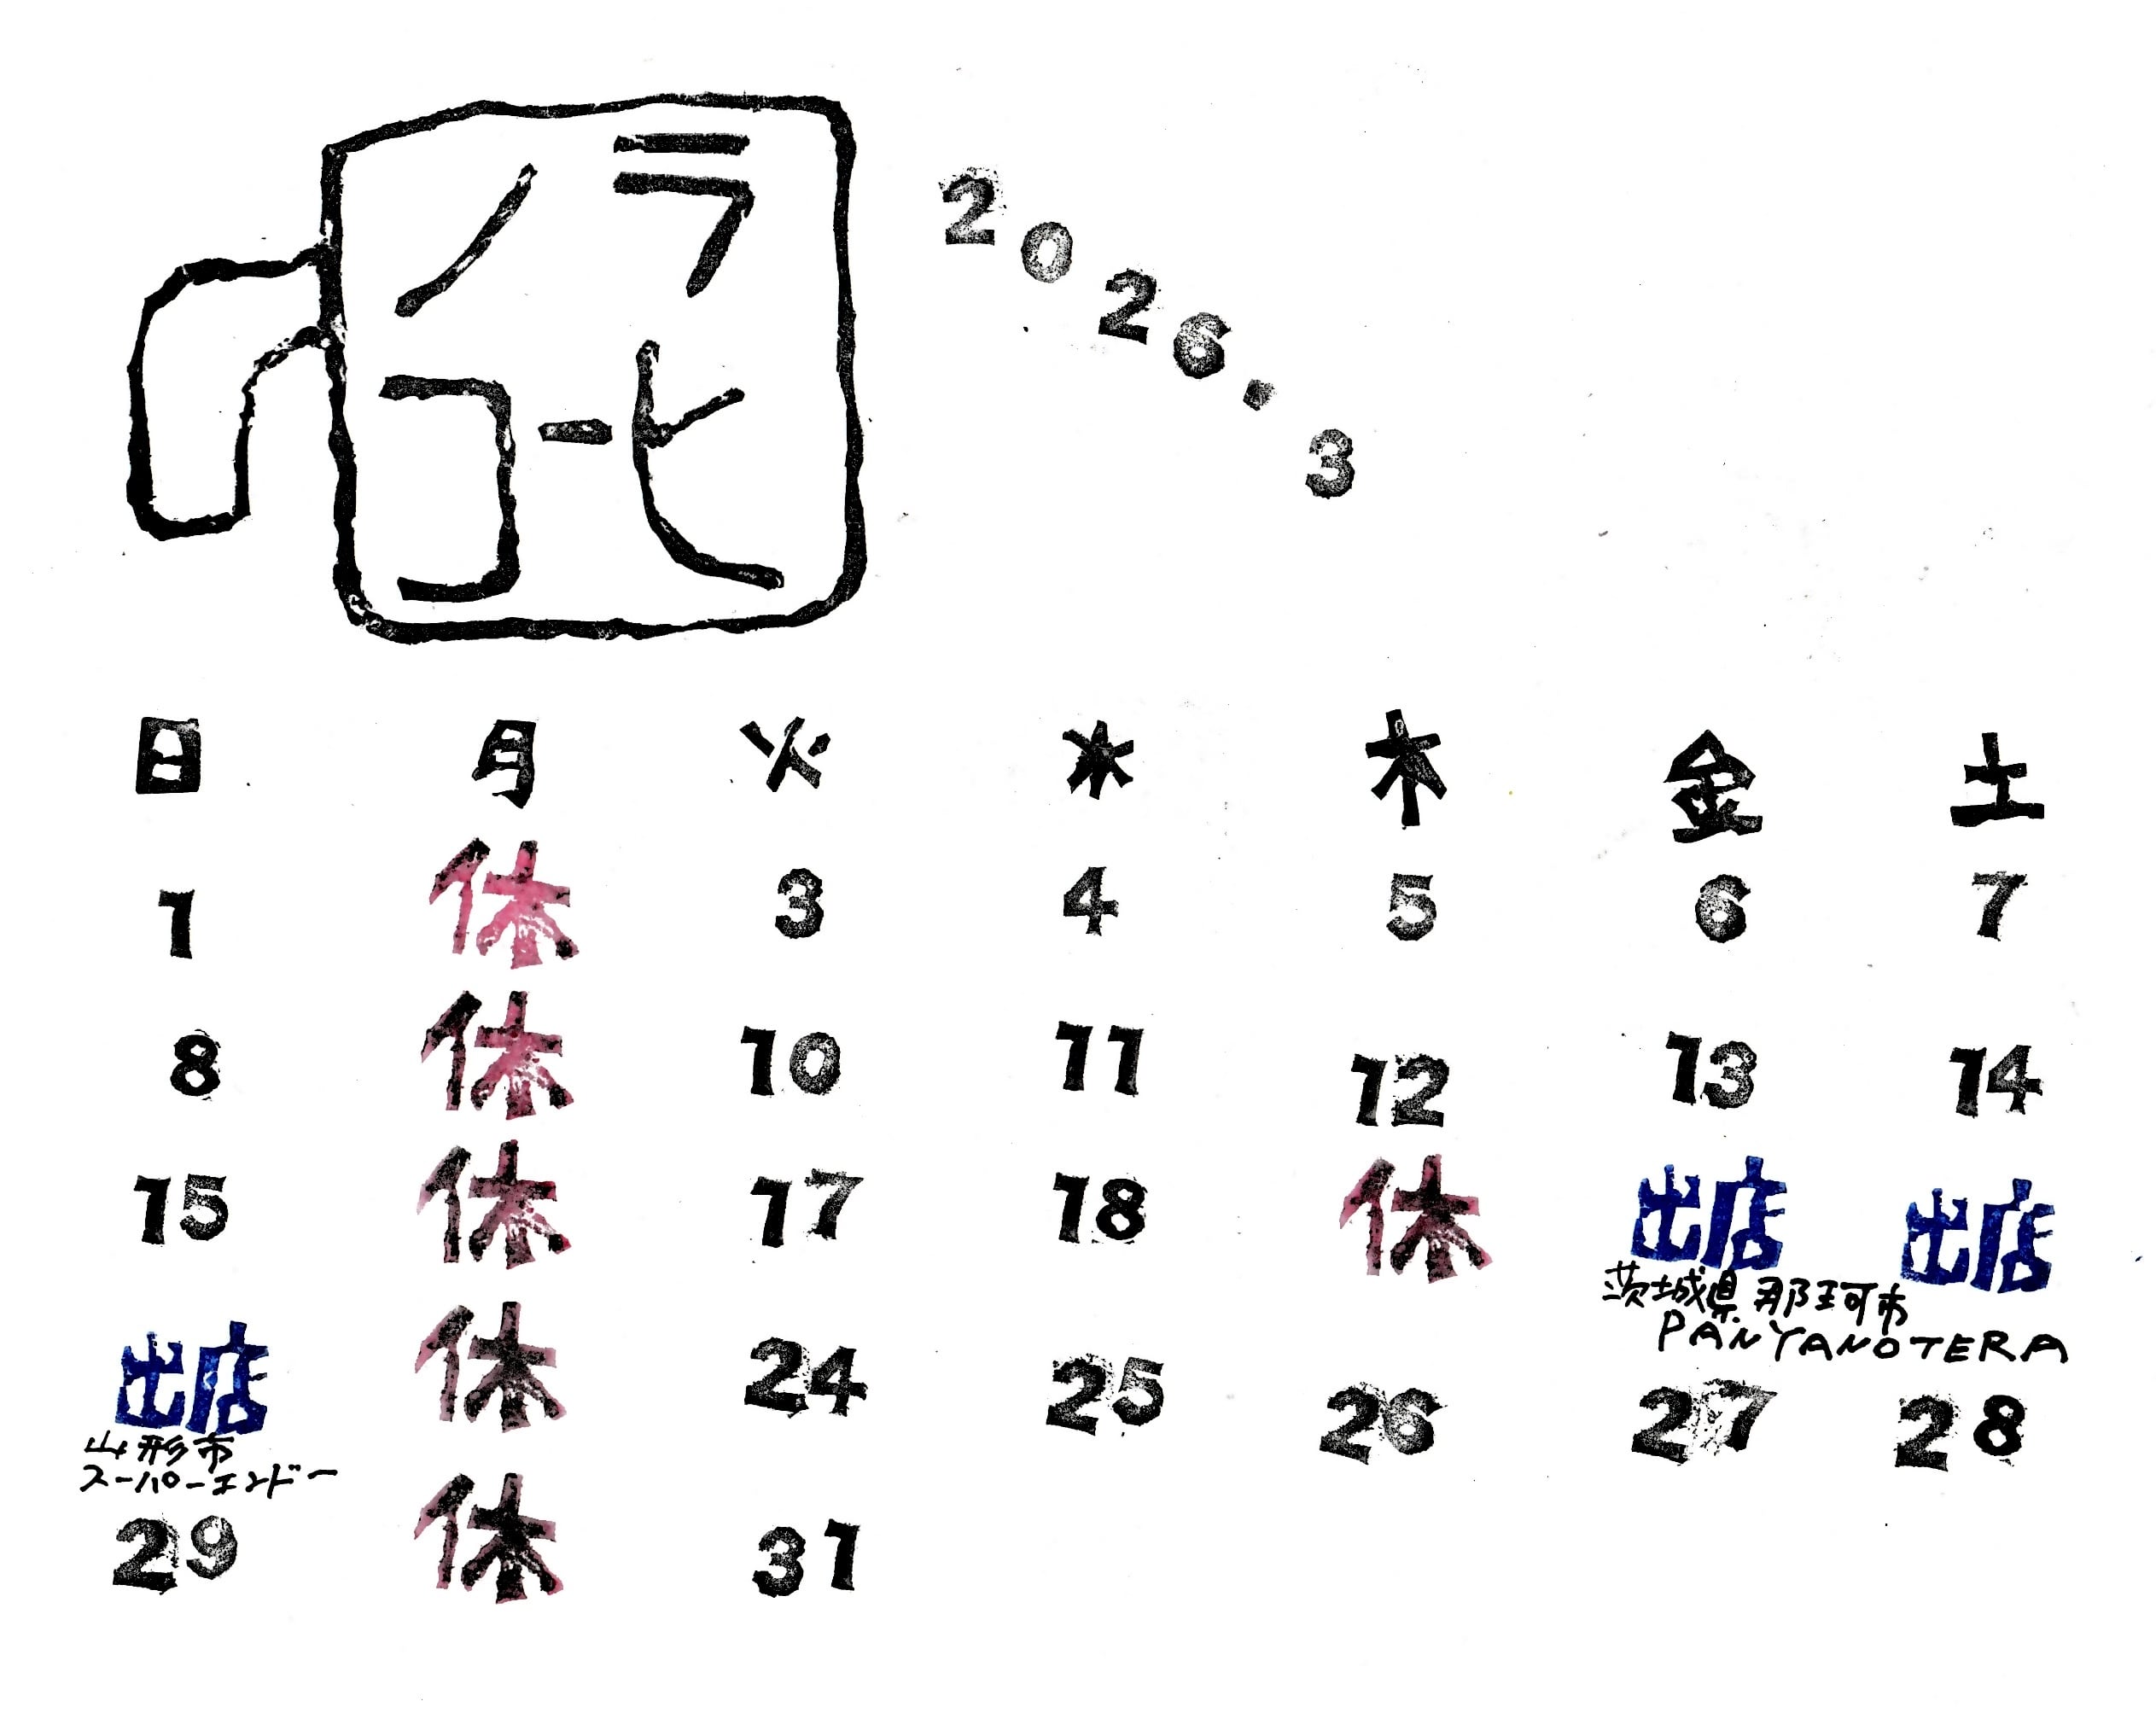 ラヒーコノ
2026.3
日 月 火 水 木 金 土
1 休 3 4 5 6 7
8 休 10 11 12 13 14
15 休 17 18 休 出店 出店
茨城県那珂市
PANYANOTERA
出店 休 24 25 26 27 28
山形市
スーパーエンドー
29 休 31